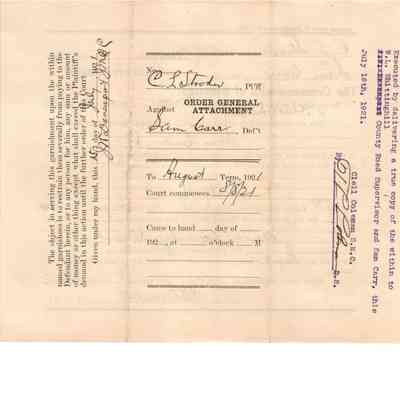 No.
C L Strode, Pl'ff
Against ORDER GENERAL ATTACHMENT
Sam Carr, Def't
To August Term, 1921
Court commences 8/8/21
Came to hand day of
192 , at o'clock M
The object in serving this garnishment upon the within
named garnishees is to restrain them severally from paying to the
Defendant herein, or to any person for him, any sum or amount
of money or other thing except what shall exceed the Plaintiff's
demand in this action until the further order of this Court.
Given under my hand, this day of July 1921
Executed by delivering a true copy of the within to
W.L. Whittinghill
County Road Supervisor and Sam Carr, this
July 16th, 1921.
Clell Coleman S.M.C.
By D.S.